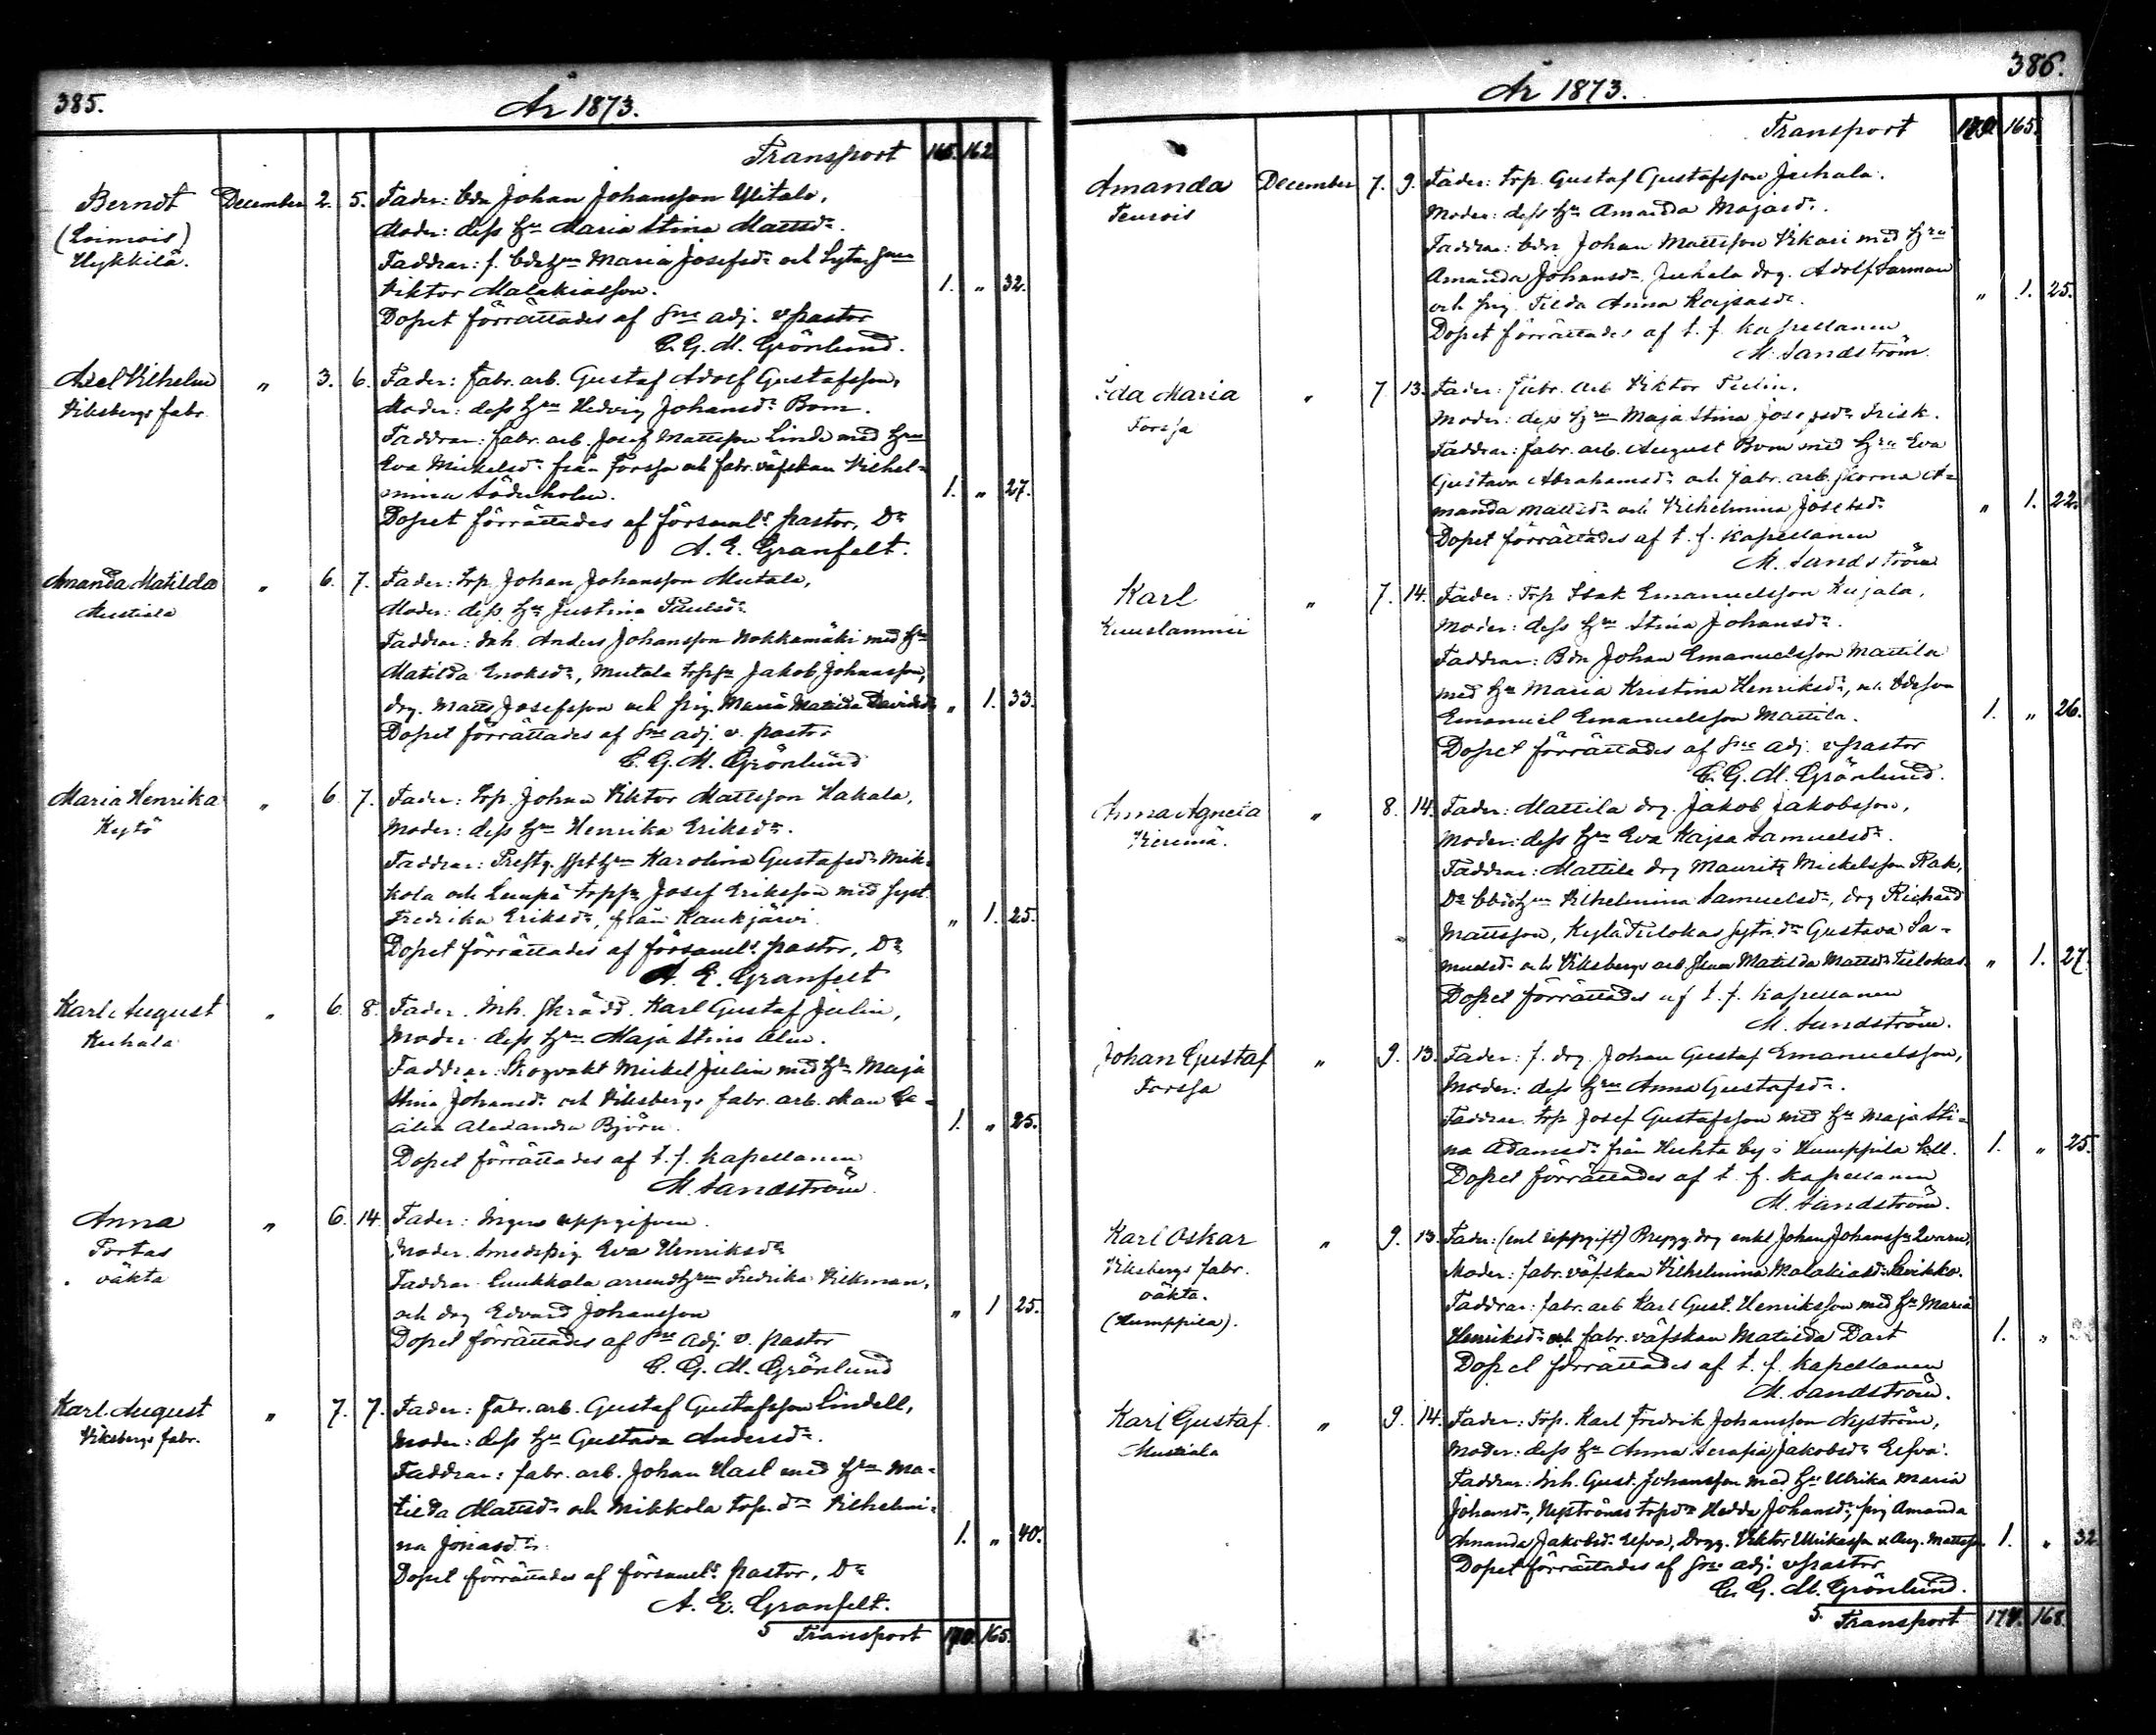 385.
År 1873.
Transport 165. 162
Berndt December 2. 5. Fader: bdn Johan Johansson Ylitalo,
(Loimois) Moder: dess Hu Maria Stina Mattsdr.
Hykkilä. Faddrar: f. bdehu Maria Josefsdr och
Viktor Malakiasson. 1. " 32.
Dopet förrättades af Sne adj. v pastor
C. G. M. Grönlund.
Axel Vilhelm " 3. 6. Fader: fabr. arb. Gustaf Adolf Gustafsson,
Viksbergs fabr. Moder: dess Hru Hedvig Johansdr Bom.
Faddrar: fabr. arb. Josef Mattsson Lind med Hru
Eva Mickelsdr från Forssa och fabr. väfskan Vilhel-
mina Söderholm. 1. " 27.
Dopet förrättades af församl:s pastor, Dr
A. E. Granfelt.
Amanda Matilda " 6. 7. Fader: trp. Johan Johansson Mutala,
Mustiala Moder: dess Hu Justina Paulsdr.
Faddrar: Inh. Anders Johansson Nokkamäki med Hu
Matilda Enoksdr, Mutala trpsn Jakob Johansson,
drg. Matts Josefsson och pig. Maria Matilda Davidsdr " 1. 33.
Dopet förrättades af Sne adj. v. pastor
C. G. M. Grönlund
Maria Henrika " 6. 7. Fader: trp. Johan Viktor Mattsson Hakala,
Kytö Moder: dess Hru Henrika Eriksdr.
Faddrar: Prestg. Hru Karolina Gustafsdr Mik-
kola och Lunpä trpsn Josef Eriksson med syst.
Fredrika Eriksdr, från Kaukjärvi. " 1. 25.
Dopet förrättades af församl:s pastor, Dr
A. E. Granfelt
Karl August " 6. 8. Fader: Inh. skrädd. Karl Gustaf Julin,
Kuhala Moder: dess Hru Maja Stina Alm.
Faddrar: Skogvakt Mickel Julin med Hu Maja
Stina Johansdr och Viksbergs fabr. arb. skan Ce-
cilia Alexandra Björn. 1. " 25.
Dopet förrättades af t. f. kapellanen
M. Sandström.
Anna " 6. 14. Fader: Ingen uppgifven.
Portas Moder: Smedspig. Eva Henriksdr
oäkta Faddrar: Luukkala arrendHru Fredrika Vikman,
och drg Edvard Johansson " 1 25.
Dopet förrättades af Sne adj. v. pastor
C. G. M. Grönlund
Karl August " 7. 7. Fader: fabr. arb. Gustaf Gustafsson Lindell,
Viksbergs fabr. Moder: dess Hu Gustava Andersdr.
Faddrar: fabr. arb. Johan Hasl med Hru Ma-
tilda Mattsdr och Mikkola trp. dr Vilhelmi-
na Jonasdr. 1. " 40.
Dopet förrättades af församl:s pastor, Dr
A. E. Granfelt.
5 Transport 170. 165.
386.
År 1873.
Transport 170. 165.
Amanda December 7. 9. Fader: trp. Gustaf Gustafsson Juhala.
Teurois Moder: dess Hu Amanda Majasdr.
Faddrar: bdn Johan Mattsson Vikari med Hru
Amanda Johansdr, Juhala drg. Adolf Sarman
och pig. Tilda Anna Kajsasdr. " 1. 25.
Dopet förrättades af t. f. kapellanen
M. Sandström.
Ida Maria " 7 13. Fader: fabr. arb Viktor Tulin.
Forssa Moder: dess Hru Maja Stina Josefsdr Frisk.
Faddrar: fabr. arb. August Bom med Hru Eva
Gustava Abrahamsdr och fabr. arb. skorna A-
manda Mattsdr och Vilhelmina Josefsdr " 1. 22.
Dopet förrättades af t. f. kapellanen
M. Sandström
Karl " 7. 14. Fader: Trp Isak Emanuelsson Kujala,
Kuuslammi Moder: dess Hru Stina Johansdr.
Faddrar: Bdn Johan Emanuelsson Mattila
med Hu Maria Kristina Henriksdr, och bdeson
Emanuel Emanuelsson Mattila. 1. " 26.
Dopet förrättades af Sne adj. v pastor
C. G. M. Grönlund.
Anna Agneta " 8. 14. Fader: Mattila drg. Jakob Jakobsson,
Kieremä. Moder: dess Hru Eva Kajsa Samuelsdr.
Faddrar: Mattila drg Mauritz Mickelsson Rak,
Dr Hru Vilhelmina Samuelsdr, drg Richard
Mattsson, Kylä Tulokas Gustava Sa-
muelsdr och Viksbergs arb. skan Matilda Mattsdr Tulokas. " 1. 27.
Dopet förrättades af t. f. kapellanen
M. Sandström.
Johan Gustaf " 9. 13. Fader: f. drg. Johan Gustaf Emanuelsson,
Forssa Moder: dess Hru Anna Gustafsdr.
Faddrar: trp Josef Gustafsson med Hu Maja Sti-
na Adamsdr från Huhta by i Humppila kll. 1. " 25.
Dopet förrättades af t. f. kapellanen
M. Sandström.
Karl Oskar " 9. 13. Fader: (enl. uppgift) Brygg. drg enkl Johan Johanss:n Qvarn,
Viksbergs fabr. Moder: fabr. väfskan Vilhelmina Malakiasdr Lavikko.
oäkta. Faddrar: fabr. arb Karl Gust. Henriksson med Hu Maria
(Humppila). Henriksdr och fabr. väfskan Matilda Dart 1. "
Dopet förrättades af t. f. kapellanen
M. Sandström.
Karl Gustaf " 9. 14. Fader: Trp. Karl Fredrik Johansson Nyström,
Mustiala Moder: dess Hu Anna Serafia Jakobsdr Elfva.
Faddrar: Inh. Gust. Johansson med Hu Ulrika Maria
Johansdr, Nyströms trpdr Hedda Johansdr, pig Amanda
Amanda Jakobsdr Elfva, Drgg. Viktor Ulrikasson & Aug. Mattsson 1. " 32
Dopet förrättades af Sne adj. v pastor
C. G. M. Grönlund.
5. Transport 174. 168.